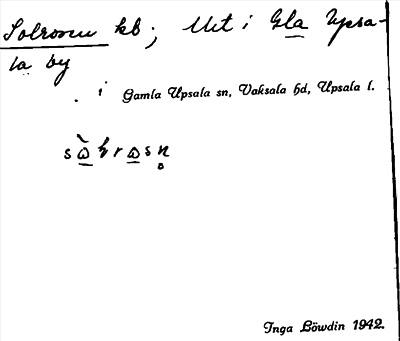 Solrosen kb; Urt i Gla Upsa-
la by
i Gamla Upsala sn, Vaksala hd, Upsala l.
Inga Löwdin 1942.